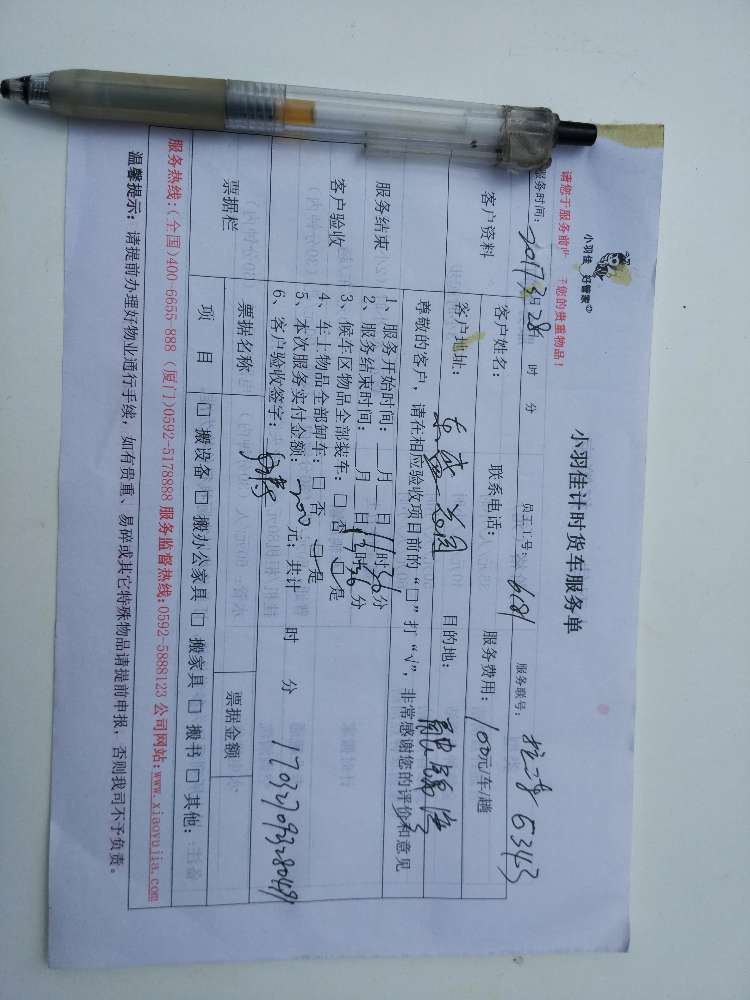 小羽佳 好管家
请您于服务前 您的贵重物品！
小羽佳计时货车服务单
服务时间：2017 3月28 时 分 员工工号：6181 服务联号： 5343
客户资料
客户姓名： 联系电话： 服务费用：100元/车/趟
客户地址： 花园 目的地：
尊敬的客户，请在相应验收项目前的“□”打“√”，非常感谢您的评价和意见
服务结束
客户验收
1、服务开始时间：__月__日11时30分
2、服务结束时间：__月__日13时30分
3、候车区物品全部装车：□ 否 □是
4、车上物品全部卸车：□ 否 □是
5、本次服务实付金额：200元；共计 时 分
6、客户验收签字：
票据栏 票据名称 票据金额
项 目 □ 搬设备 □ 搬办公家具 □ 搬家具 □ 搬书 □ 其他：
服务热线：(全国)400-6655-888 (厦门)0592-5178888 服务监督热线:0592-5888123 公司网站:www.xiaoyujia.com
温馨提示：请提前办理好物业通行手续，如有贵重、易碎或其它特殊物品请提前申报，否则我司不予负责。